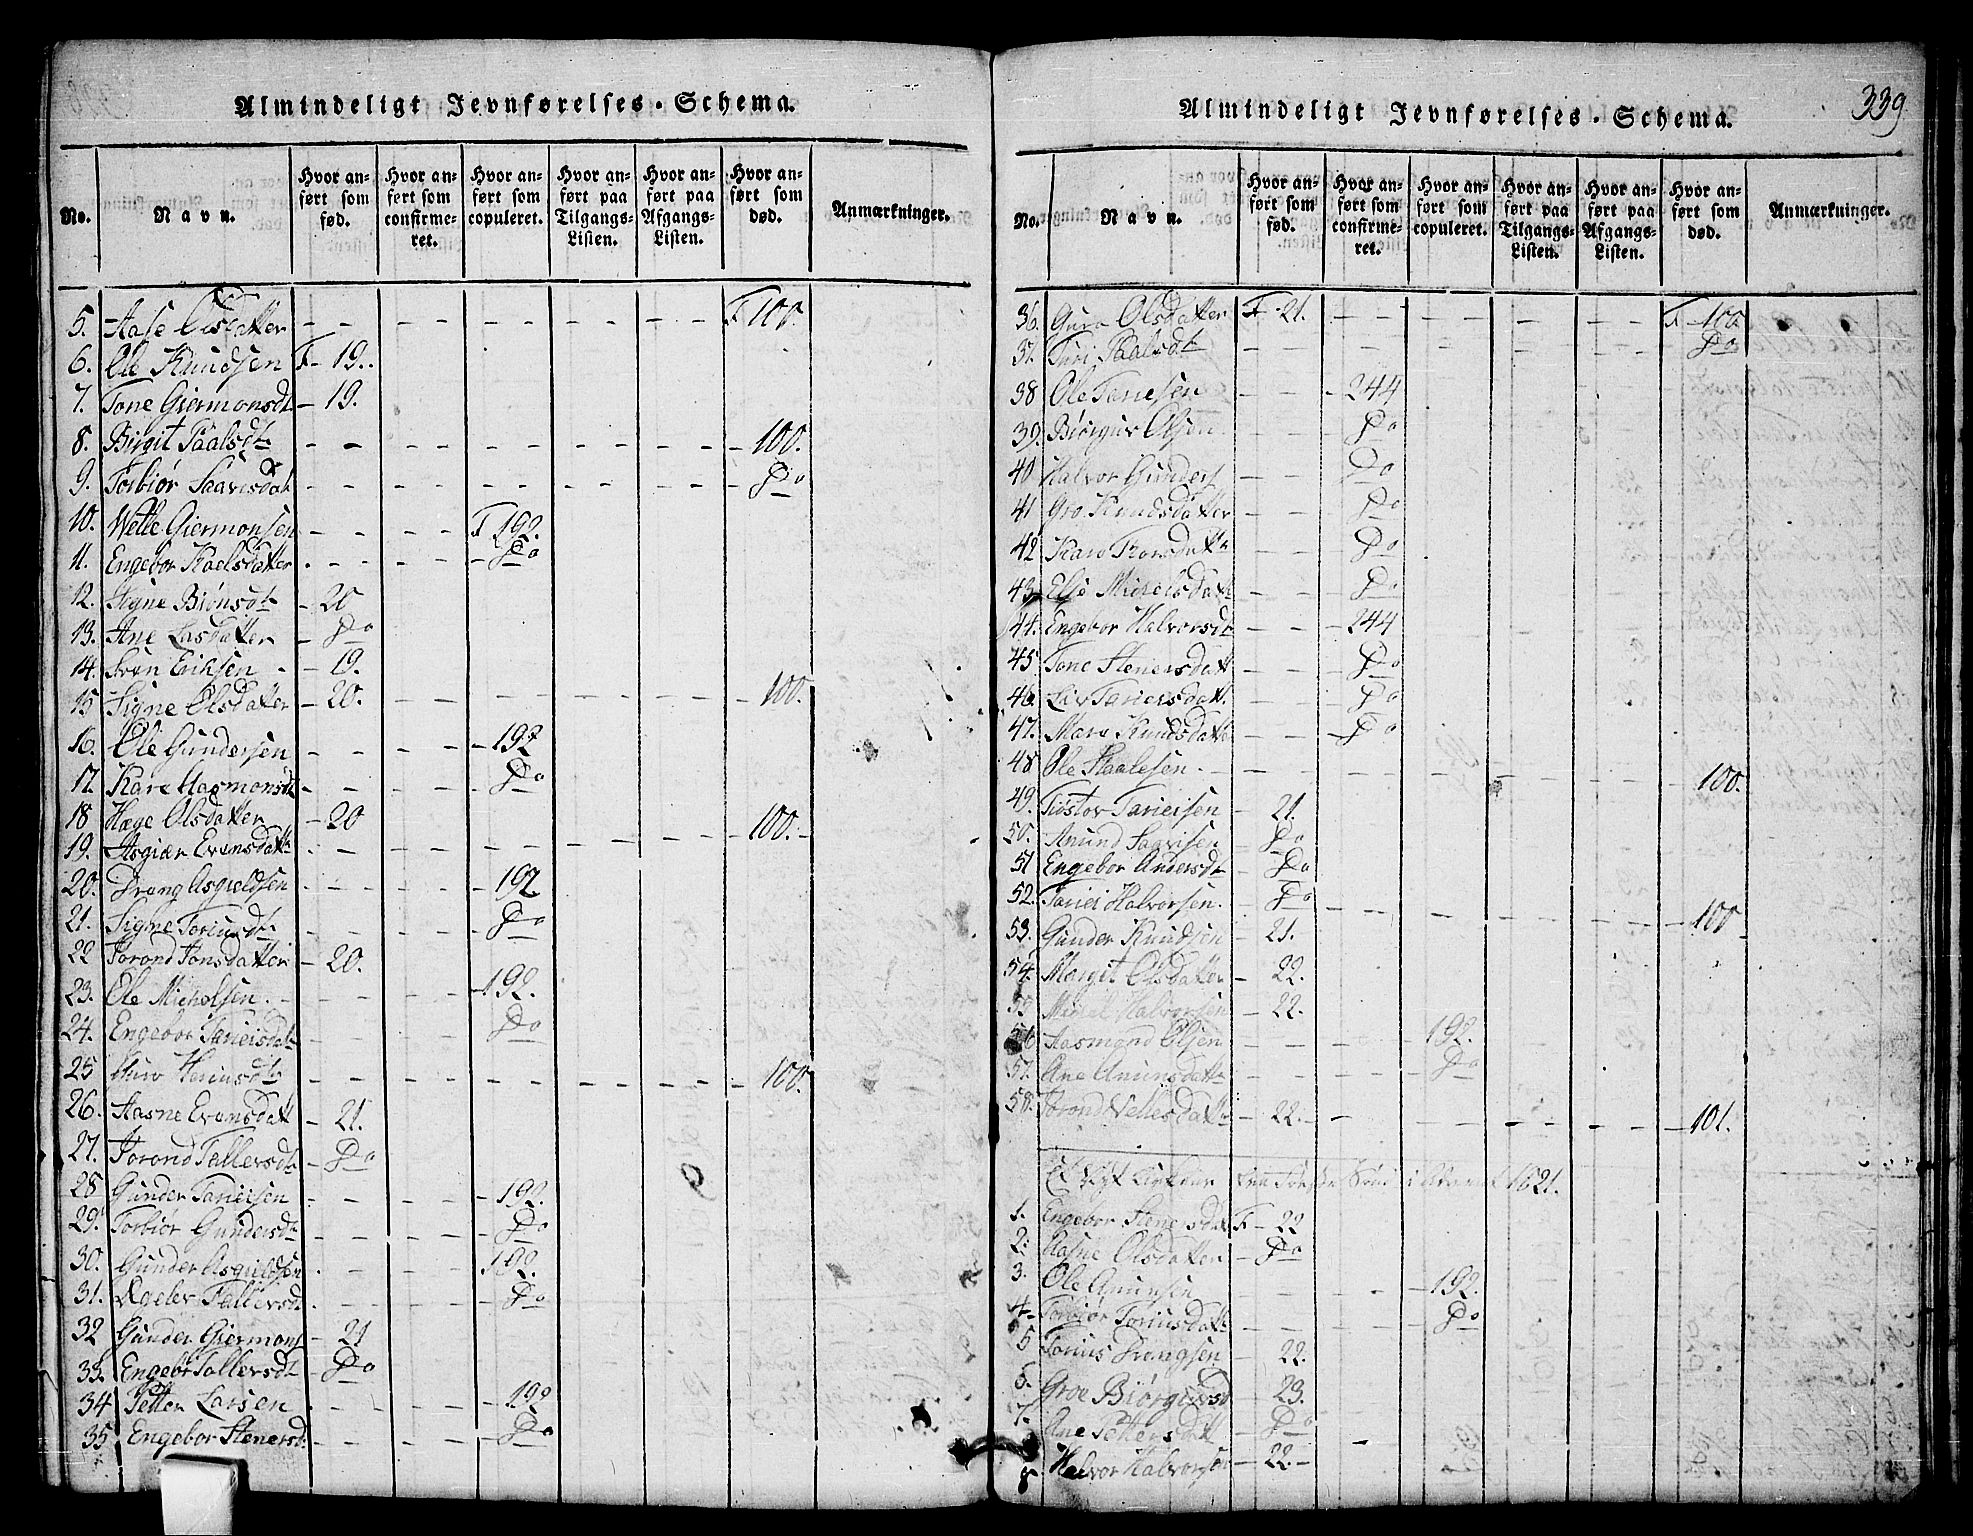 Almindeligt Jevnførelses-Schema.
No. Navn. Hvor anført som fød. Hvor anført som confirmeret. Hvor anført som copuleret. Hvor anført paa Tilgangs-Listen. Hvor anført paa Afgangs-Listen. Hvor anført som død. Anmærkninger.
5. Aase Olsdatter F 100.
6. Ole Knudsen F 19.
7. Tone Giermonsdt 19.
8. Birgit Paalsdt 100.
9. Torbiør Saavisdat Do
10. Wetle Giermonsen F 192.
11. Engebor Kaelsdatter Do
12. Signe Biønsdt 20
13. Ane Lasdatter Do
14. Sven Eriksen 19.
15 Signe Olsdatter 20. 100.
16. Ole Gundersen 192
17. Kare Aasmonsdt Do
18 Hæge Olsdatter 20 100.
19. Asgiær Evensdatt
20. Drang Asgieldsen 192
21. Signe Toriusdt Do
22 Jorond Jonsdatter 20.
23. Ole Michelsen 192.
24. Engebor Tarieisdat Do
25 Guro Heriusdt 100.
26. Aasne Evensdatt 21.
27. Jorond Tallersdt Do
28 Gunder Tarieisen 192.
29. Torbiør Gundersdt Do
30. Gunder Asgieldsen 192.
31. Ageler Tallersd Do
32 Gunder Giermons 21
33. Engebr Tallersdt Do
34 Petter Larsen 192
35 Engebor Stenersd Do
Almindeligt Jevnførelses-Schema. 339
No. Navn. Hvor anført som fød. Hvor anført som confirmeret. Hvor anført som copuleret. Hvor anført paa Tilgangs-Listen. Hvor anført paa Afgangs-Listen. Hvor anført som død. Anmærkninger.
36. Guro Olsdatter F 21. F 100
37. Turi Paalsdt Do
38 Ole Tarieisen 244
39. Biørgus Olsen Do
40 Halvor Gunders Do
41 Gro Knudsdatter Do
42 Karo Torsdatt Do
43. Else Michelsdatt Do
44. Engebor Halvorsdt 244
45 Tone Stenersdatt Do
46. Liv Tarieisdatt Do
47. Mare Knudsdatt Do
48 Ole Staalesen 100.
49. Tiøstov Tarieisen 21.
50. Anund Saavisen Do
51 Engebor Andersdt Do
52. Tariei Halvorsen Do 100
53. Gunder Knudsen 21.
54. Margit Olsdatter 22.
55 Michel Halvorsen 22.
56 Aasmond Olsen 192.
57. Ane Anunsdatt Do
58. Jorond Vellesdatt 22. 101.
1821.
1. Engebor Stenersdat F 22
2. Aasne Olsdatter Do
3. Ole Anunsen 192.
4. Torbiør Toriusdatt Do
5 Torius Drangsen 22.
6. Groe Biørgusd 23.
7. Ane Pettersdatt Do
8. Halvor Halvorsen 22